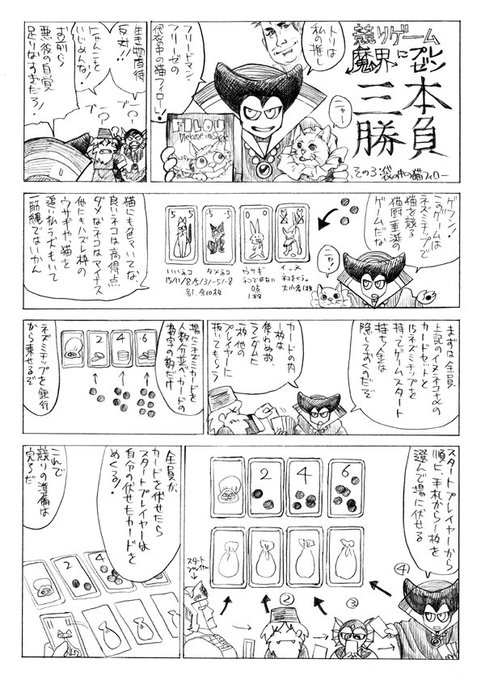 競りゲーム
魔界にプレゼン
三本
勝負
その3：袋の中の猫フィロー
トーは
私の推し
ニャー
フリードマン・
フリーゼの
代表作の猫フィロー！
FILOU
生き物虐待
反対！！
にゃんこを
いじめんな！
お前じゃ
悪役の自覚
足りなすぎだろ！
ブー
ブー
ゲフン！
このゲームは
ネズミチップで
猫を競る
猫厨垂涎の
ゲームだな
ニャー
猫にも色々いてな、
良いネコは高得点
ダメなネコはマイナス
他にもハズレ枠の
ウサギや猫を
追い払う犬もいて
一筋縄でいかん
いいネコ
ダメネコ
ウサギ
イーヌ
15/11/8/5/3/-5/-8
ネコではない
0点
1枚
大小各1枚
まずは全員
上記のイヌ・ネコその他の
カードセットと
15ネズミチップを
持ってゲームスタート
持ち金は
隠しておくのだぞ
カードの内
使わぬ
1枚は
ランダムに
他の
プレイヤーに
抜いてもらう
場にネズミカードを
人数分並べカードの
数字の数だけ
ネズミチップを銀行
から乗せるぞ
2
4
6
スタートプレイヤーから
順に、手札から一枚を
選んで場に伏せる
2
4
6
①
②
③
④
スタート
プレイヤー
全員が、
カードを伏せたら
スタートプレイヤーは
自分の伏せたカードを
めくる！
これで
競りの準備は
完了だ